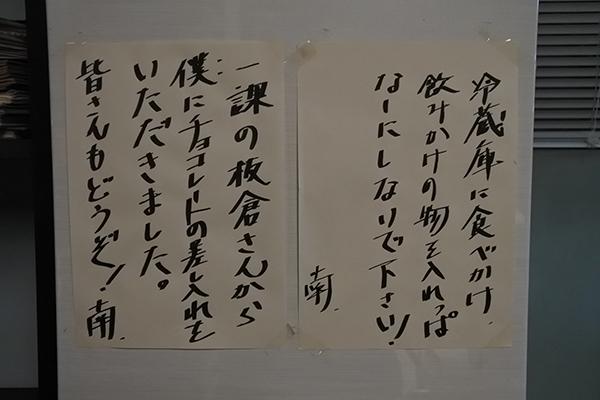 冷蔵庫に食べかけ、
飲みかけの物を入れっぱ
なーにしないで下さい！
南.
一課の板倉さんから
僕にチョコレートの差し入れを
いただきました。
皆さんもどうぞ！南.